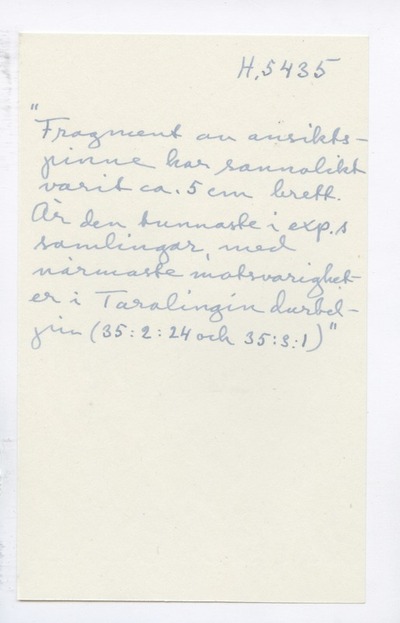 H.5435
"Fragment av ansikts-
pinne har sannolikt
varit ca. 5 cm brett.
Är den tunnaste i exp.s
samlingar, med
närmaste motsvarighet-
er i Taralingin durbel-
jin (35:2:24 och 35:3:1)"